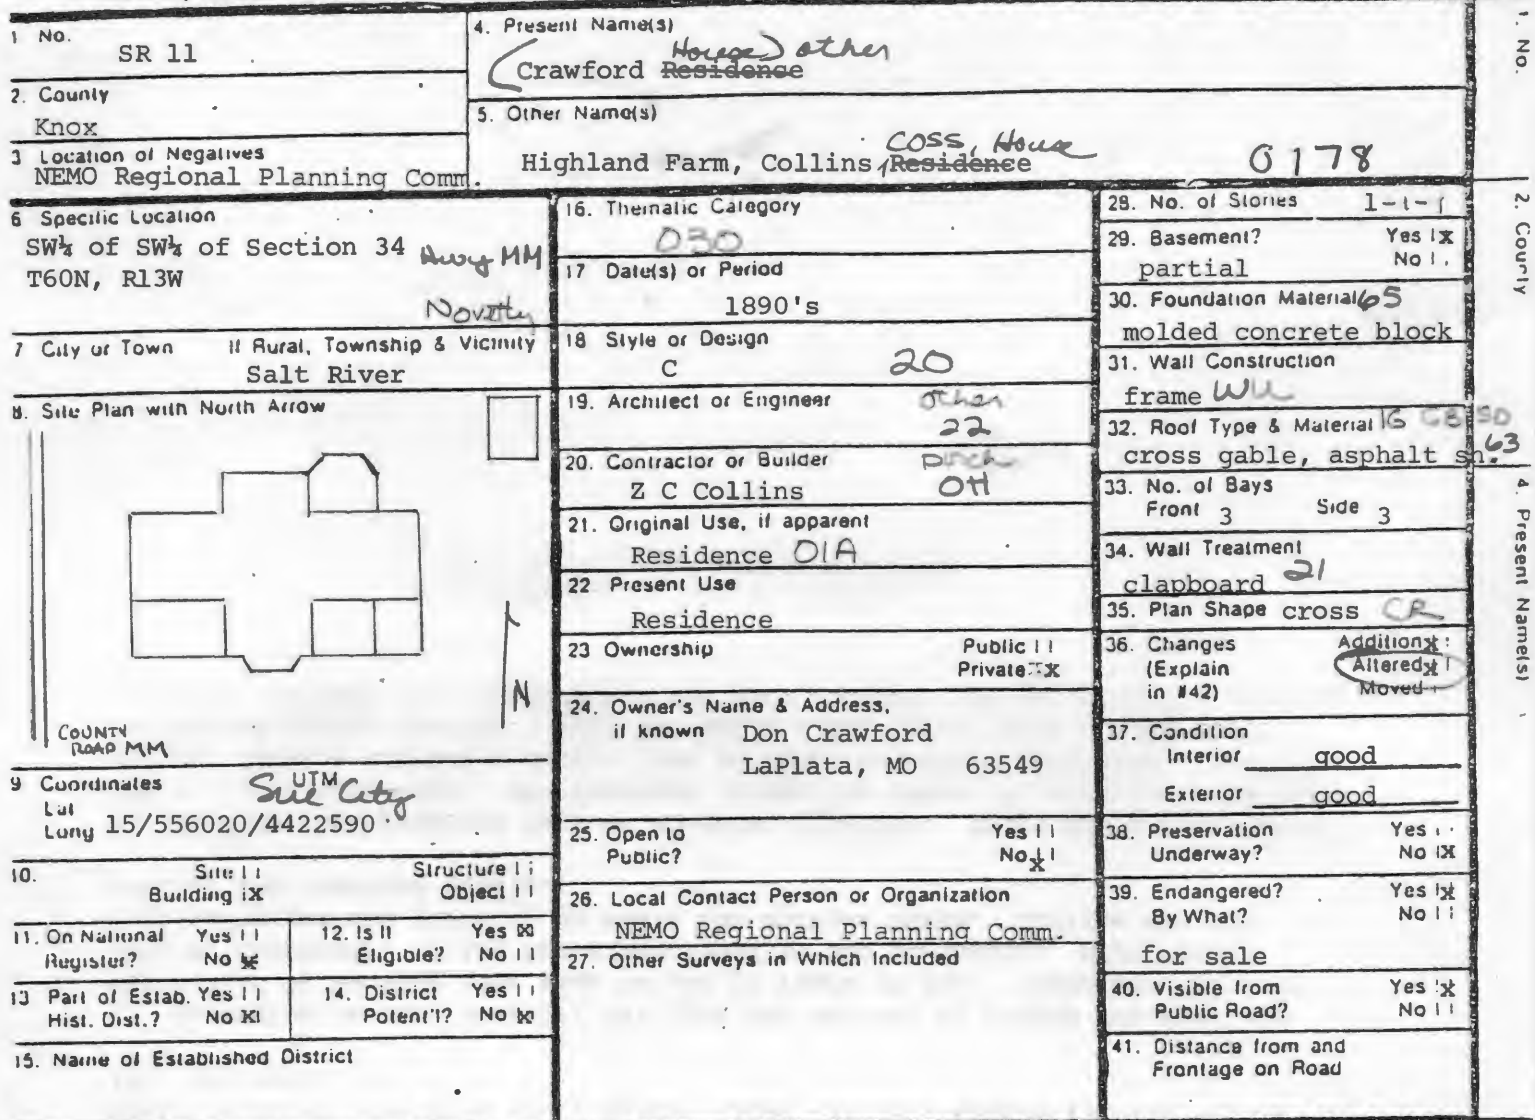 1 No.
SR 11
2. County
Knox
3 Location of Negatives
NEMO Regional Planning Comm.
4. Present Name(s)
House) other
(Crawford Residence
5. Other Name(s)
Coss, House
Highland Farm, Collins, Residence
0178
6 Specific Location
SW¼ of SW¼ of Section 34
Hwy MM
T60N, R13W
Novelty
7 City or Town If Rural, Township & Vicinity
Salt River
8. Site Plan with North Arrow
N
COUNTY
ROAD MM
9 Coordinates UTM
Lat
Long 15/556020/4422590
10. Site | | Structure | |
Building |X Object | |
11. On National Yes | |
Register? No X
12. Is It Yes X
Eligible? No | |
13 Part of Estab. Yes | |
Hist. Dist.? No X|
14. District Yes | |
Potent'l? No X
15. Name of Established District
16. Thematic Category
030
17 Date(s) or Period
1890's
18 Style or Design
C 20
19. Architect or Engineer
other
22
20. Contractor or Builder
Z C Collins OH
21. Original Use, if apparent
Residence 01A
22 Present Use
Residence
23 Ownership Public | |
Private X
24. Owner's Name & Address,
if known Don Crawford
LaPlata, MO 63549
25. Open to Yes | |
Public? No X
26. Local Contact Person or Organization
NEMO Regional Planning Comm.
27. Other Surveys in Which Included
28. No. of Stories 1-1-1
29. Basement? Yes |X
partial No | |
30. Foundation Material 65
molded concrete block
31. Wall Construction
frame WU
32. Roof Type & Material 16 GB SD
cross gable, asphalt sh. 63
33. No. of Bays
Front 3 Side 3
34. Wall Treatment
clapboard 21
35. Plan Shape cross CR
36. Changes Addition X
(Explain Altered X
in #42) Moved
37. Condition
Interior good
Exterior good
38. Preservation Yes | |
Underway? No |X
39. Endangered? Yes X
By What? No | |
for sale
40. Visible from Yes X
Public Road? No | |
41. Distance from and
Frontage on Road
1. No.
2. County
4. Present Name(s)